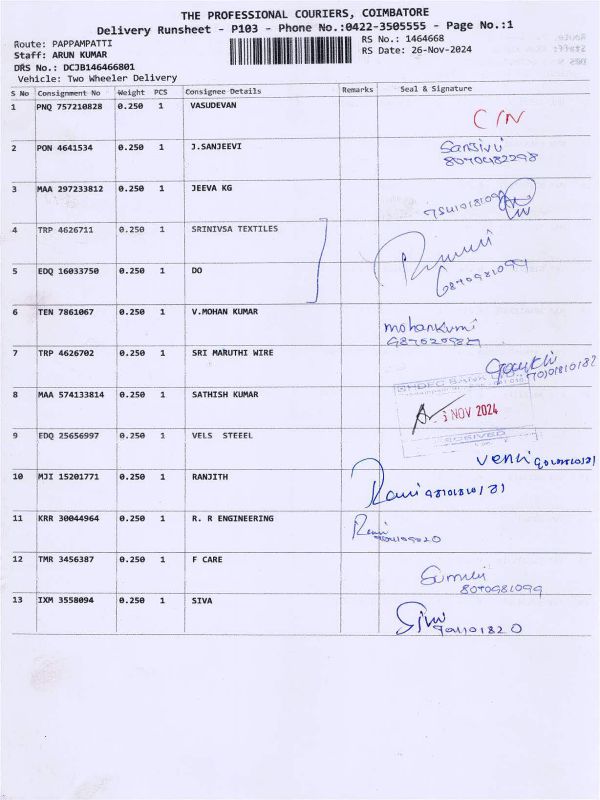 THE PROFESSIONAL COURIERS, COIMBATORE
Delivery Runsheet - P103 - Phone No.:0422-3505555 - Page No.:1
Route: PAPPAMPATTI
RS No.: 1464668
Staff: ARUN KUMAR
RS Date: 26-Nov-2024
DRS No.: DCJB146466801
Vehicle: Two Wheeler Delivery
S No Consignment No Weight PCS Consignee Details Remarks Seal & Signature
1 PNQ 757210828 0.250 1 VASUDEVAN
C/N
2 PON 4641534 0.250 1 J.SANJEEVI
Sanjivi
3 MAA 297233812 0.250 1 JEEVA KG
4 TRP 4626711 0.250 1 SRINIVSA TEXTILES
5 EDQ 16033750 0.250 1 DO
6 TEN 7861067 0.250 1 V.MOHAN KUMAR
mohankumi
7 TRP 4626702 0.250 1 SRI MARUTHI WIRE
8 MAA 574133814 0.250 1 SATHISH KUMAR
HDFC BANK
NOV 2024
9 EDQ 25656997 0.250 1 VELS STEEEL
10 MJI 15201771 0.250 1 RANJITH
11 KRR 30044964 0.250 1 R. R ENGINEERING
12 TMR 3456387 0.250 1 F CARE
8070981099
13 IXM 3558094 0.250 1 SIVA